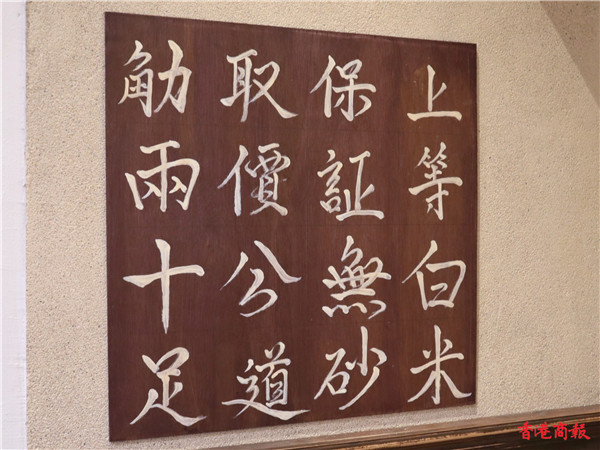 上等白米
保証無砂
取價公道
觔兩十足
香港商報